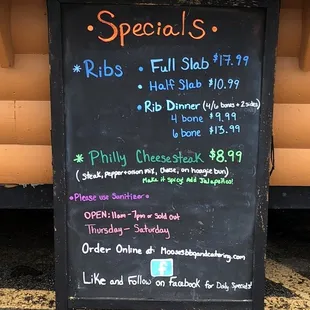 • Specials •
* Ribs • Full Slab $17.99
• Half Slab $10.99
• Rib Dinner (4/6 bones + 2 sides)
4 bone $9.99
6 bone $13.99
* Philly Cheesesteak $8.99
(steak, pepper+onion mix, cheese, on hoagie bun)
Make it spicy add Jalapeños!
* Please use Sanitizer *
OPEN: 11am - 7pm or Sold out
Thursday - Saturday
Order Online at Moosesbbqandcatering.com
f
Like and Follow on Facebook for Daily Specials!